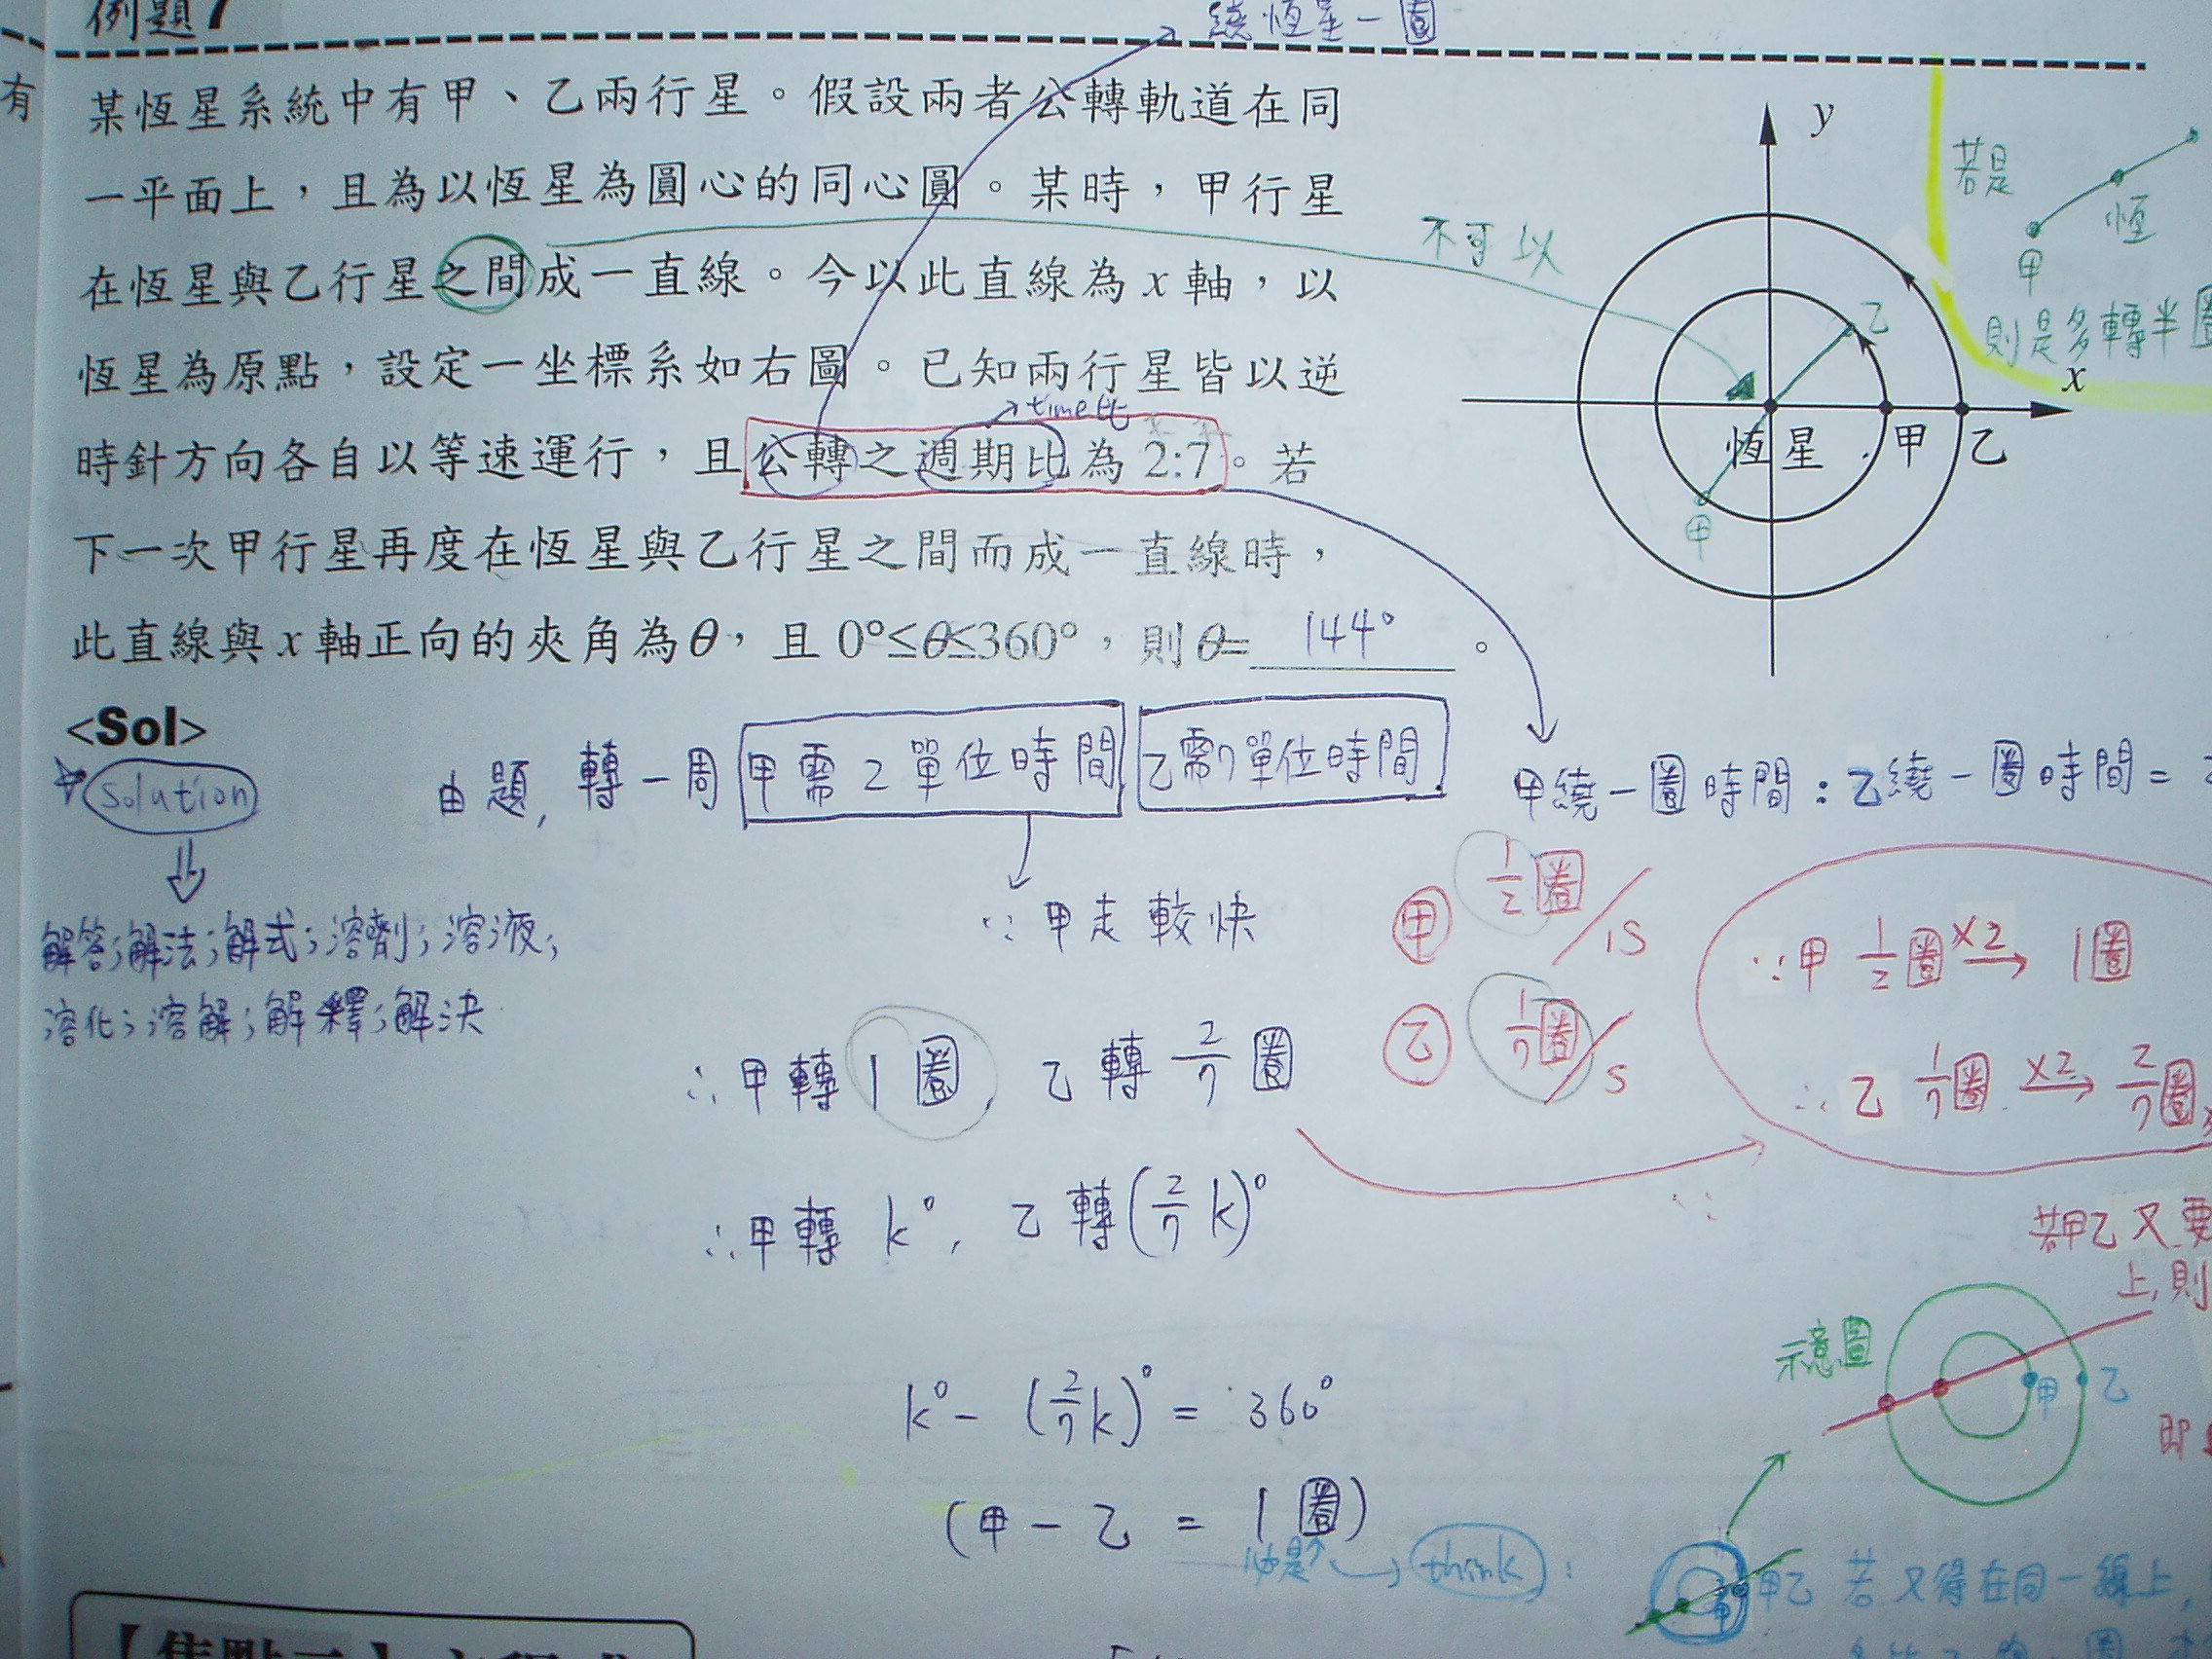 例題7
繞恆星一圈
有
某恆星系統中有甲、乙兩行星。假設兩者公轉軌道在同
一平面上，且為以恆星為圓心的同心圓。某時，甲行星
在恆星與乙行星之間成一直線。今以此直線為x軸，以
恆星為原點，設定一坐標系如右圖。已知兩行星皆以逆
time比
時針方向各自以等速運行，且公轉之週期比為2:7。若
下一次甲行星再度在恆星與乙行星之間而成一直線時，
此直線與x軸正向的夾角為θ，且0°≤θ≤360°，則θ=144°。
不可以
y
x
乙
恆星
甲
乙
甲
若是
恆
甲
則是多轉半圈
<Sol>
solution
解答;解法;解式;溶劑;溶液;
溶化;溶解;解釋;解決
由題, 轉一周 甲需2單位時間, 乙需7單位時間.
甲繞一圈時間:乙繞一圈時間=
∵甲走較快
甲 1/2圈/1S
乙 1/7圈/S
∵甲 1/2圈 ×2→ 1圈
∴乙 1/7圈 ×2→ 2/7圈
∴甲轉1圈, 乙轉2/7圈
∴甲轉 k°, 乙轉(2/7 k)°
若甲乙又要
上,則
示意圖
甲 乙
k°-(2/7k)°=360°
(甲-乙=1圈)
think:
甲乙 若又得在同一線上,